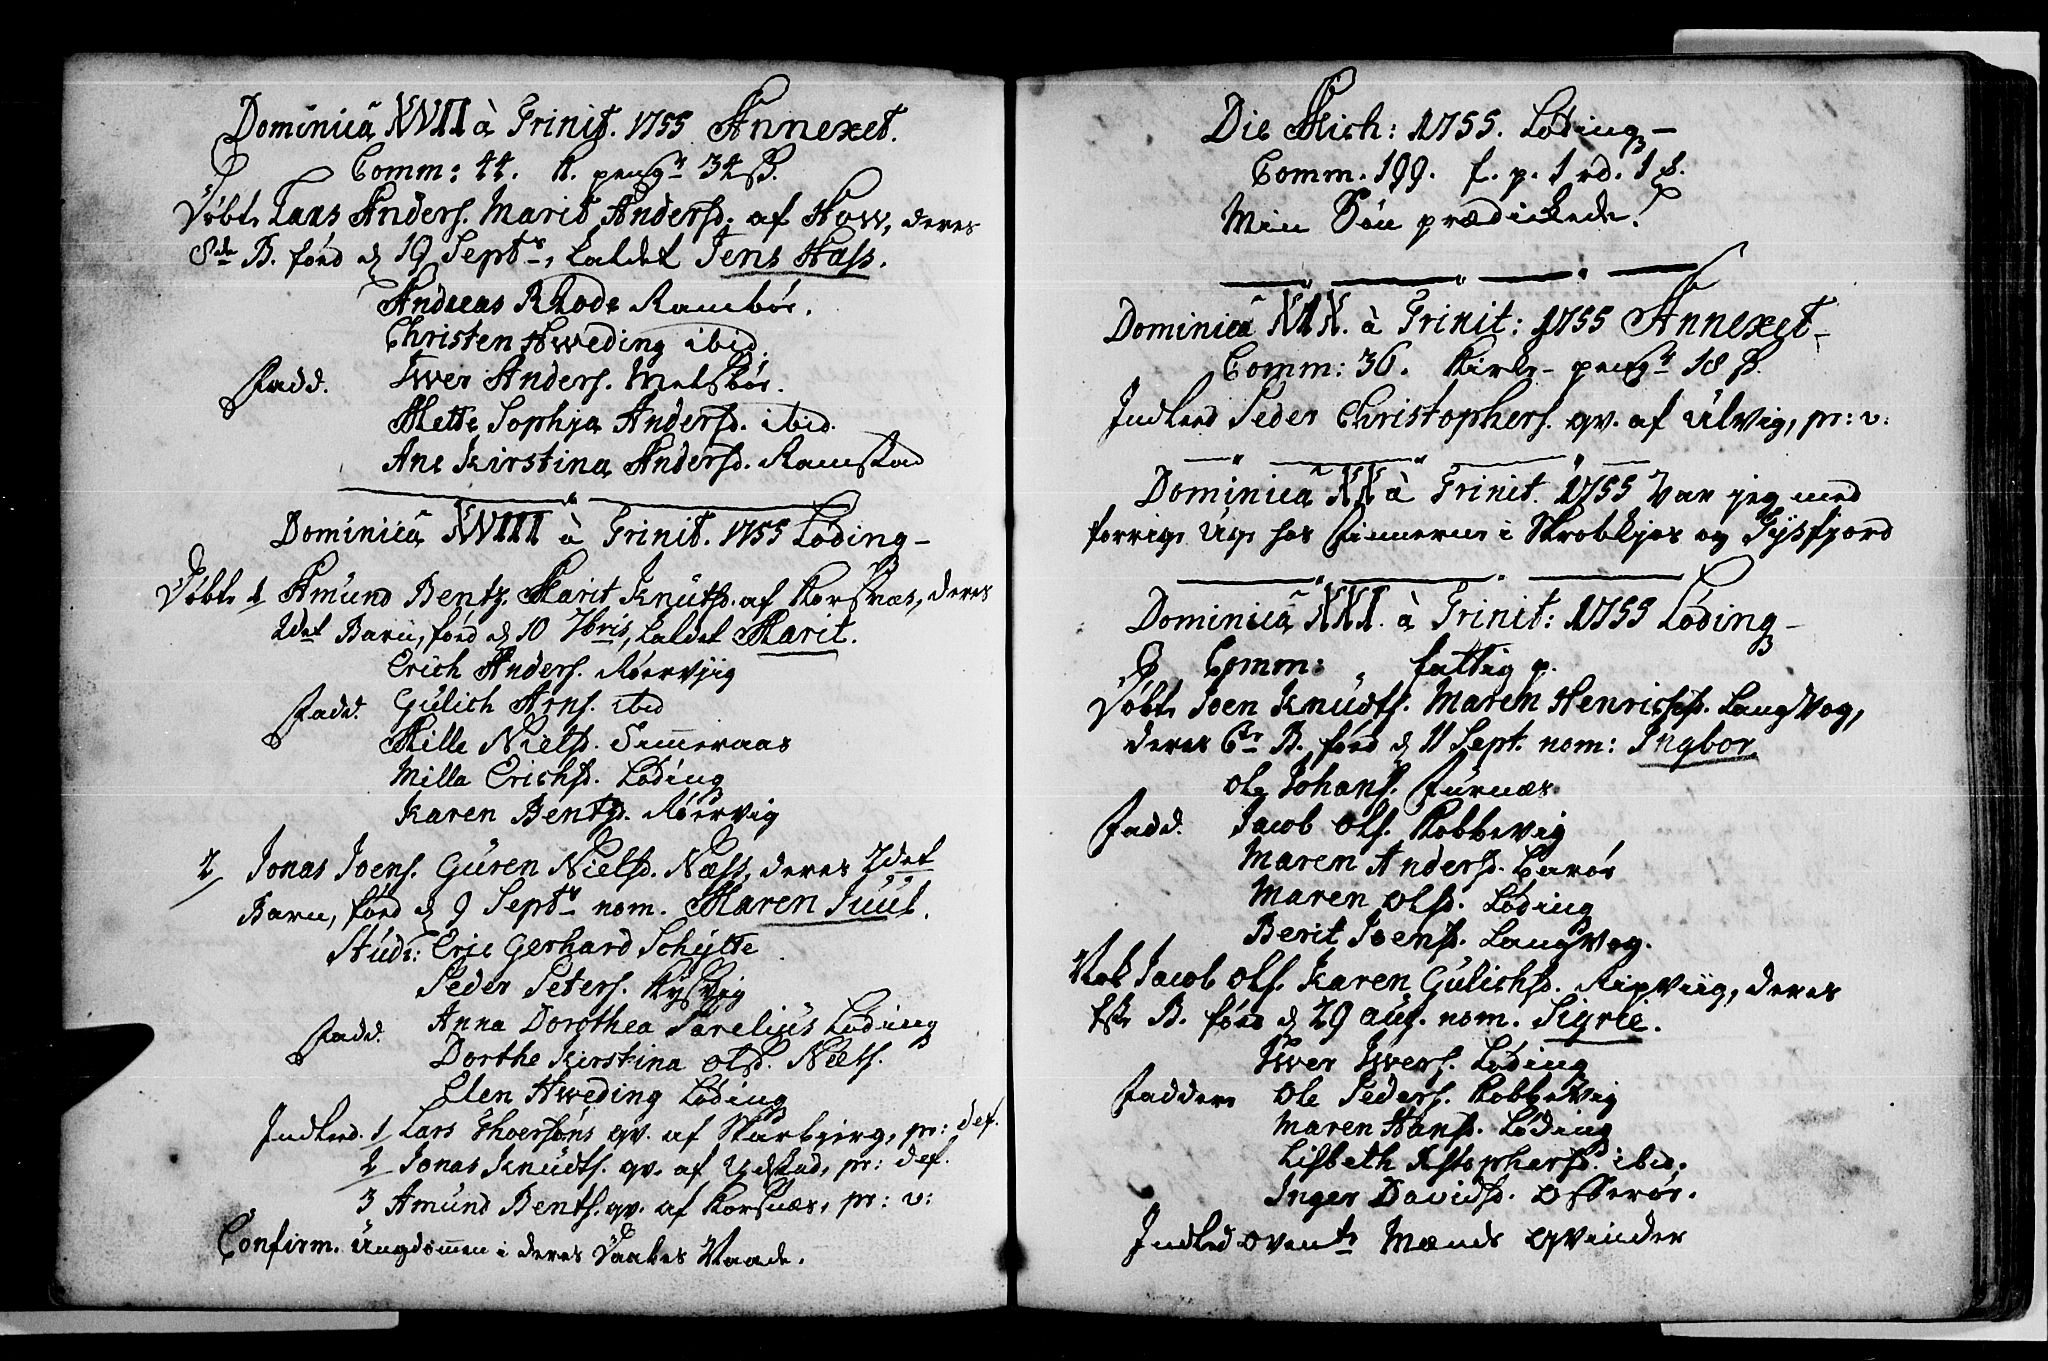 Dominicâ XVII à Trinit. 1755 Annexet.
Comm: 44. K. peng 34 ß.
Døbt Lars Anders. Marit Andersd. af How, deres
8de B. fød d 19 Septr, kaldet Jens Hass.
Andreas Rhode Rambør.
Christen Hweding ibid.
Fadd. Iwer Anders. Melsbør.
Mette Sophja Andersd. ibid.
Ane Kirstina Andersd. Ramstad
Dominicâ XVIII à Trinit. 1755 Løding
Døbt 1 Amund Bentz. Marit Knutsd. af Korsnæs, deres
2det Barn, fød d 10 7bris, kaldet Marit.
Erich Anders. Røervjig
Fadd. Gulich Arns. ibid
Mille Nielsd. Simmeraas
Milla Erichsd. Løding
Karen Bentzd. Røervig
2 Jonas Joens. Guren Nielsd. Næss, deres 2det
Barn, fød d 9 Septr nom. Maren Juul.
Stud: Eric Gerhard Schytte
Peder Peters. Kysvig
Anna Dorothea Parelius Løding
Fadd. Dorthe Kirstina Olsd. Niels.
Elen Hweding Løding
Indled. 1 Lars Thoersøns qv. af Skarbjerg, pr: def.
2 Jonas Knudts. qv. af Ydstad, pr: def.
3 Amund Bents. qv. af Korsnæs, pr: v:
Confirm. Ungdommen i deres Daabes Naade.
Die Mich: 1755. Løding
Comm. 199. f. p. 1 rd. 1 ß.
Min Søn prædickede.
Dominicâ XIX. à Trinit: 1755 Annexet
Comm: 36. Kirke peng 18 ß.
Indled Peder Christophers. qv. af Ulvig, pr: v:
Dominicâ XX à Trinit. 1755 Var jeg med
forrige Uge hos Finnerne i Skrobkjos og Tysfjord
Dominicâ XXI. à Trinit: 1755 Løding
Comm: „ fattig p.
Døbt Joen Knudts. Maren Henrichsd. Langvog,
deres 6te B. fød d 11 Sept. nom: Ingbor
Ole Johans. Furnæs
Fadd. Jacob Ols. Kobbevig
Maren Andersd. Barør
Maren Olsd. Løding
Berit Joensd. Langvog.
Nok Jacob Ols. Karen Gulichsd. Ripviig, deres
1ste B. fød d 29 aug. nom. Sigrie.
Iwer Iwers. Løding
Faddere Ole Peders. Kobbevig
Maren Hansd. Løding
Lisbeth Xstophersd. ibid.
Inger Davidsd. Offerør.
Indled ovente Mænds Qvinder